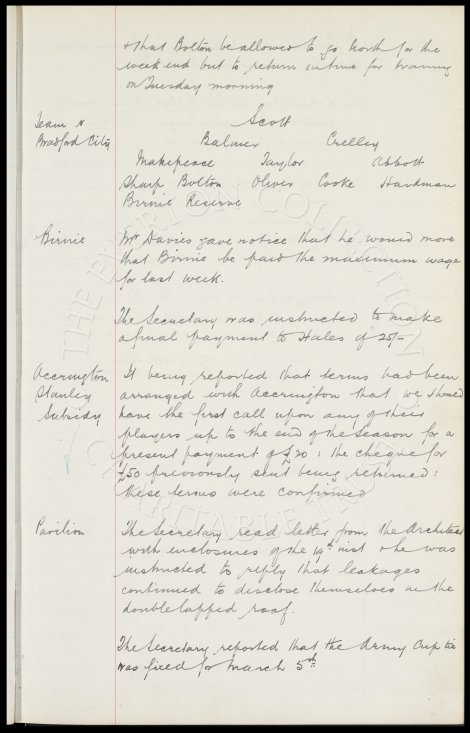 & that Bolton be allowed to go North for the
week end but to return in time for training
on Tuesday morning
Team v
Bradford City
Scott
Balmer Crelley
Makepeace Taylor Abbott
Sharp Bolton Oliver Cooke Hardman
Birnie Reserve
Birnie
Mr Davies gave notice that he would move
that Birnie be paid the maximum wage
for last week.
The Secretary was instructed to make
a final payment to Hales of 25/-
Accrington
Stanley
Subsidy
It being reported that terms had been
arranged with Accrington that we should
have the first call upon any of their
players up to the end of the Season for a
present payment of £20: the cheque for
£50 previously sent being returned:
these terms were confirmed
Pavilion
The Secretary read letter from the Architect
with enclosures of the 19th inst & he was
instructed to reply that leakages
continued to disclose themselves in the
double lapped roof.
The Secretary reported that the Army Cup tie
was fixed for March 5th
THE EVERTON COLLECTION
CHARITABLE TRUST